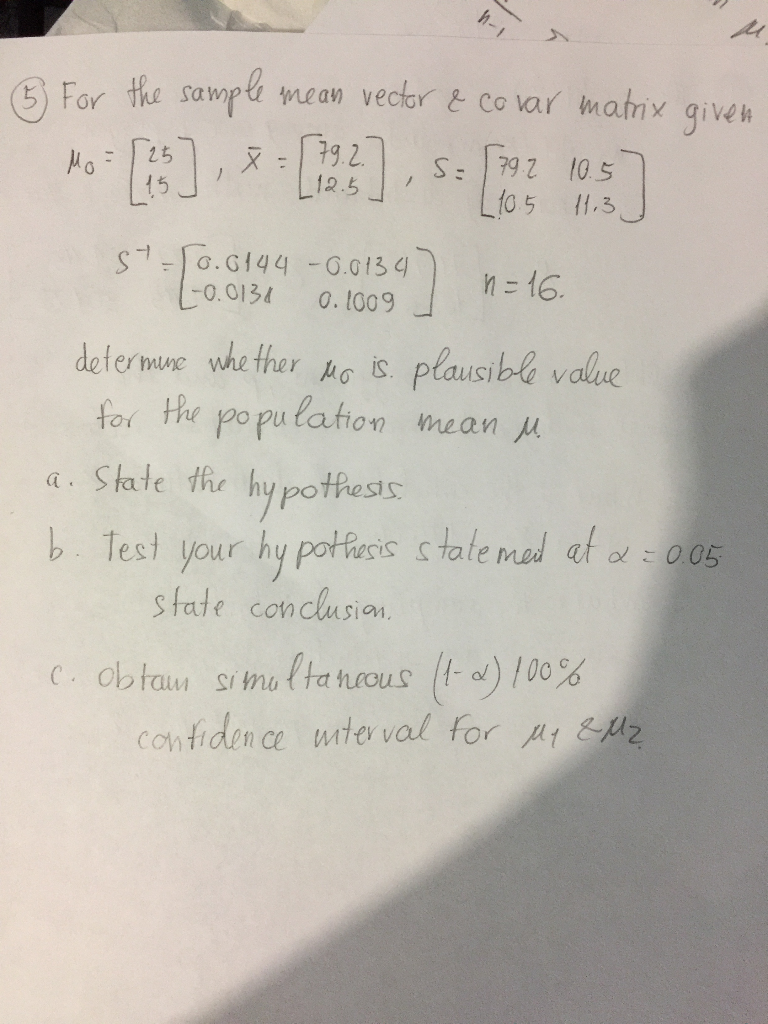 n-1
μ
⑤ For the sample mean vector & covar matrix given
μ₀ = [25 15], x̄ = [79.2. 12.5], S = [79.2 10.5 10.5 11.3]
S⁻¹ = [0.0144 -0.0134 -0.0134 0.1009] n = 16.
determine whether μ₀ is. plausible value
for the population mean μ.
a. State the hypothesis.
b. Test your hypothesis statemed at α = 0.05
state conclusion.
c. obtain simultaneous (1-α) 100%
confidence interval for μ₁ & μ₂